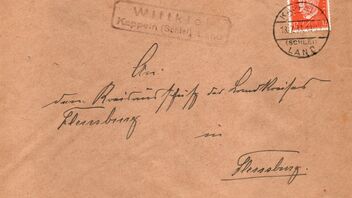 Wittkiel
Kappeln (Schlei) Land
(SCHLEI)
LAND
An
den Kreisausschuß des Landkreises
Flensburg
in
Flensburg.